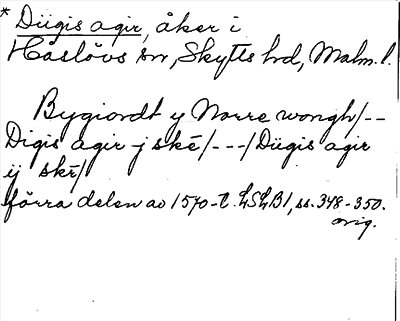 * Diigis agir, åker i
Håslövs sn, Skytts hd, Malm. l.
Bygiordt y Norre wongh/--
Digis agir j skē/---/Diigis agir
ij skē/
förra delen av 1570-t. LSLB1, ss. 348-350.
orig.